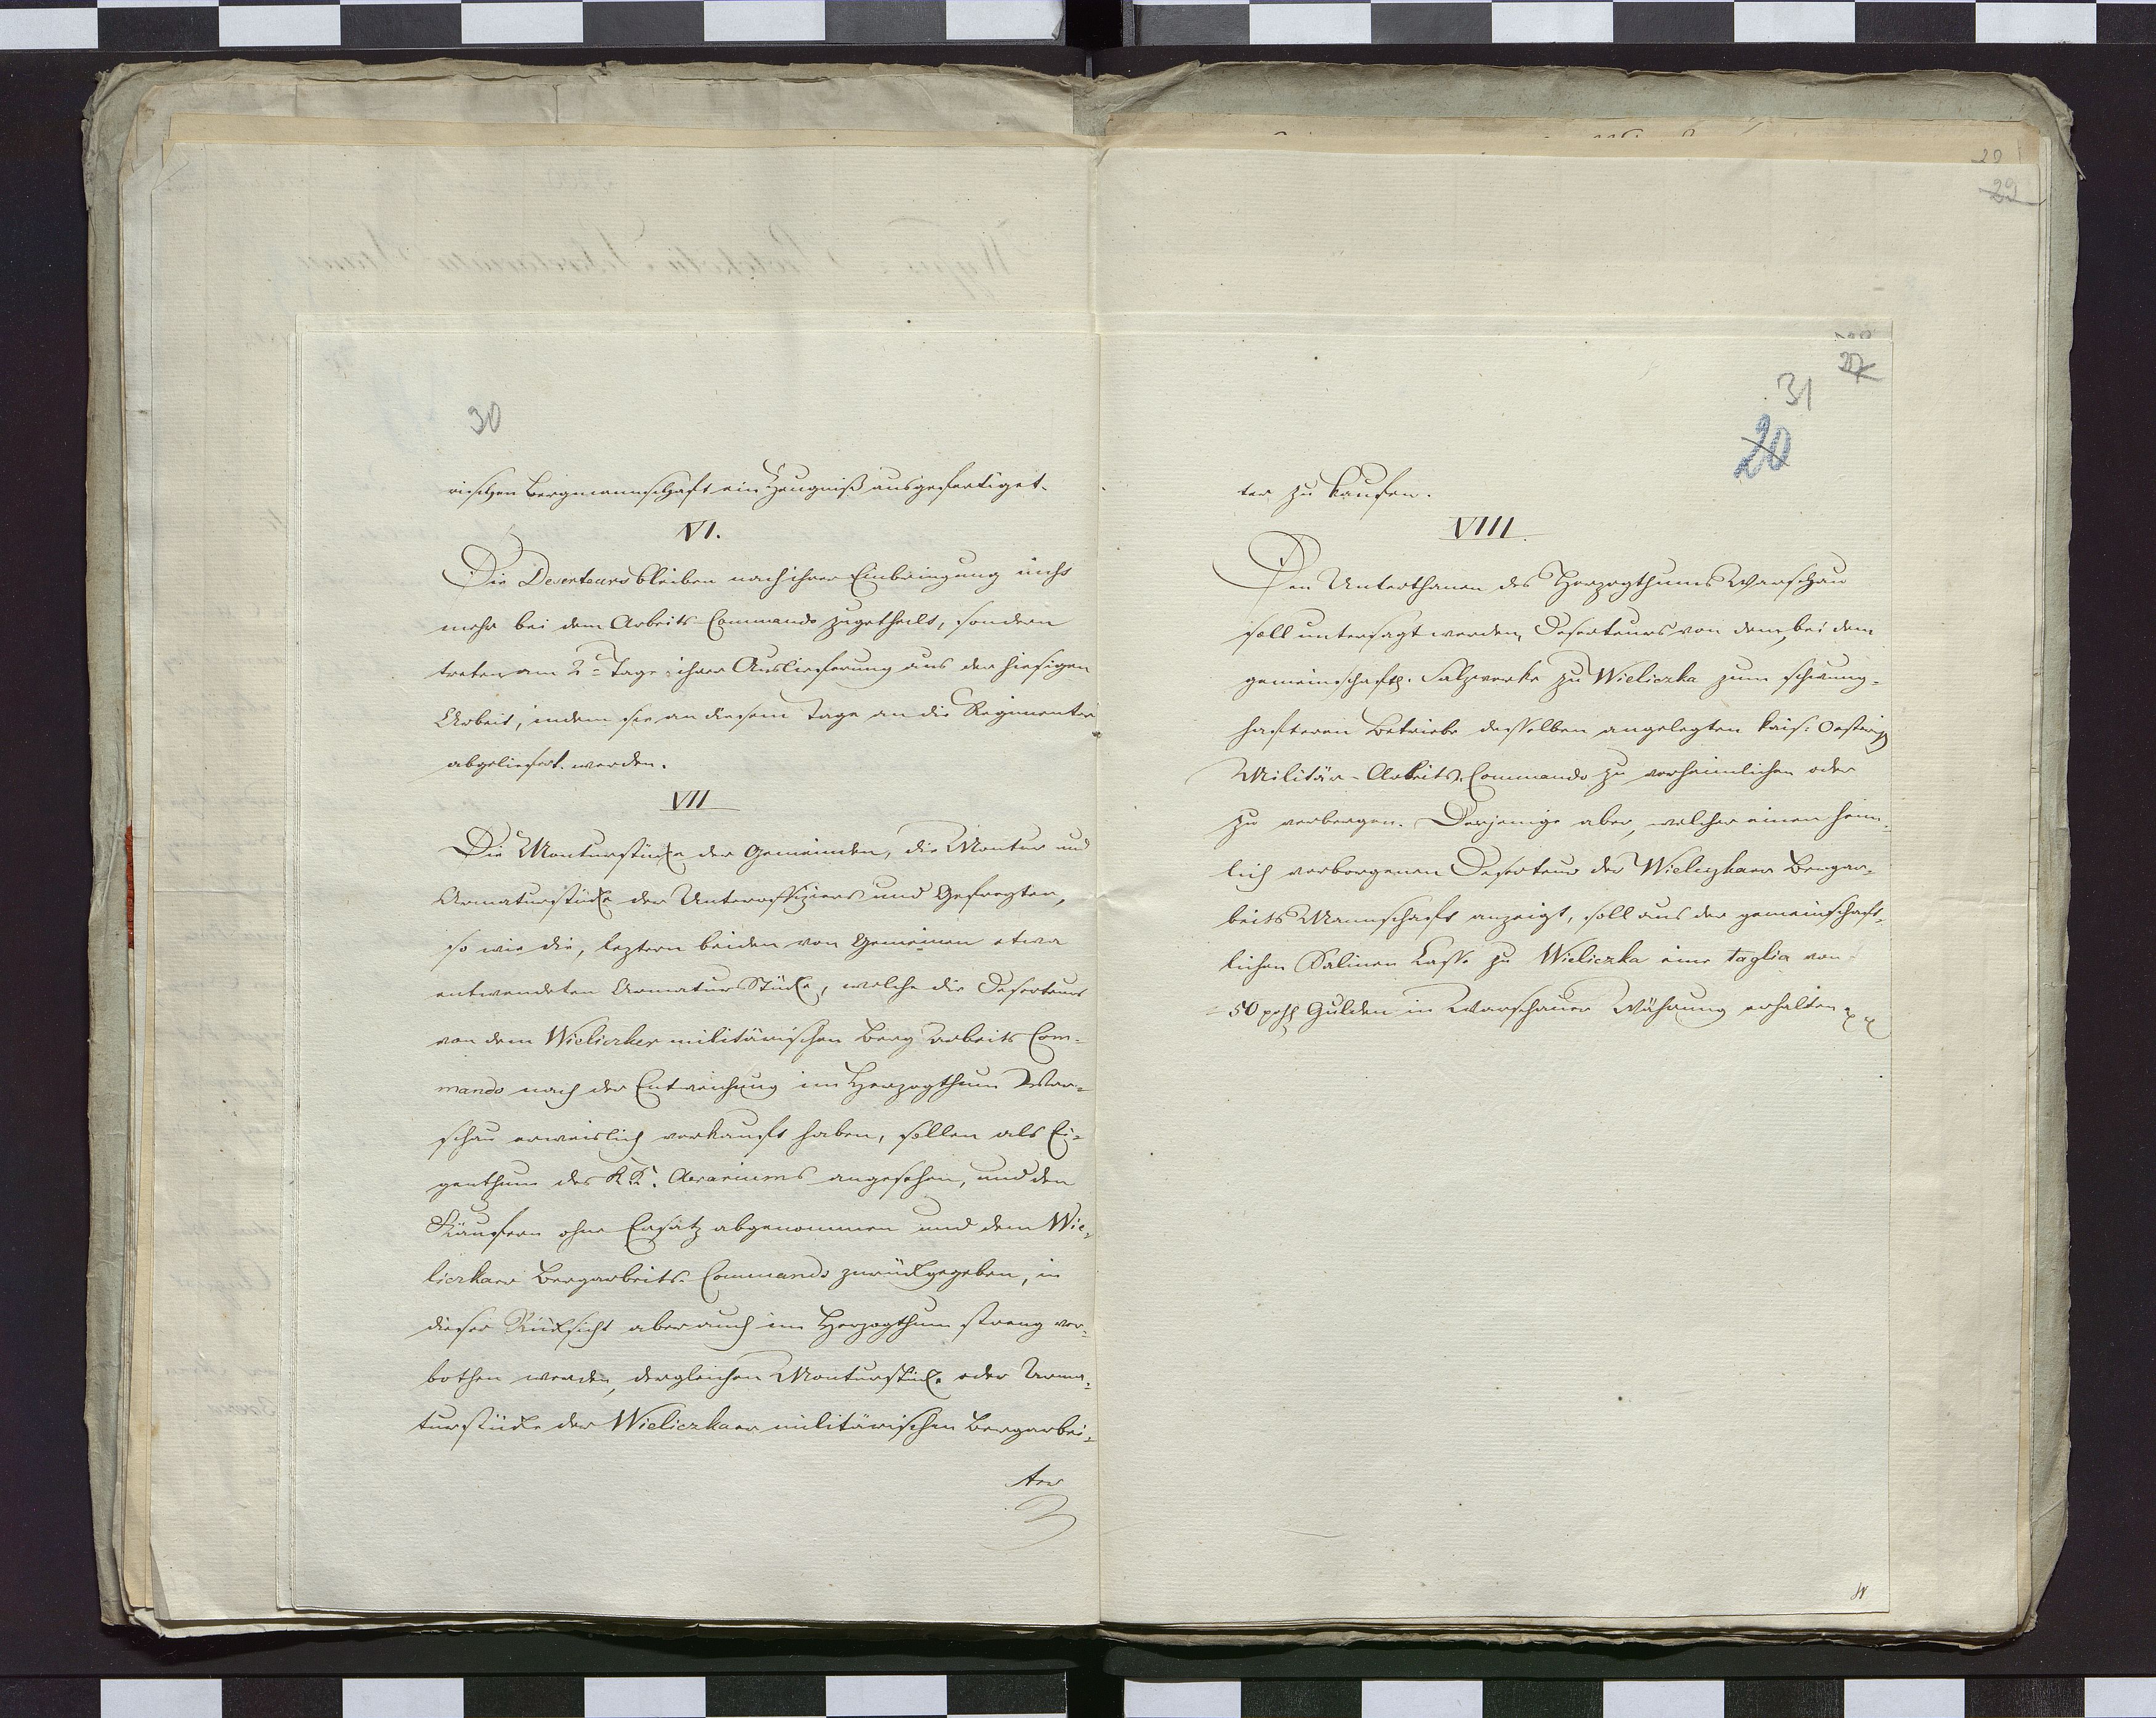 30
rischen Bergmannschaft ein Zeugniß ausgefertiget.
VI.
Die Deserteurs bleiben nach ihrer Einbringung nicht
mehr bei dem Arbeits-Commando zugetheilt, sondern
treten am 2n Tage ihrer Auslieferung aus der hiesigen
Arbeit, indem sie an diesem Tage an die Regimenter
abgeliefert werden.
VII
Die Monturstücke der Gemeinden, die Montur und
Armaturstücke der Unteroffiziers und Gefreyten,
so wie die, leztern beiden von Gemeinen etwa
entwendeten Armaturs Stücke, welche die Deserteurs
von dem Wieliczker militärischen Berg Arbeits Com-
mando nach der Entweichung im Herzogthum War-
schau erweislich verkauft haben, sollen als Ei-
genthum des K.K. Aerariums angesehen, und den
Käufern ohne Ersatz abgenommen und dem Wie-
liczkaer Bergarbeits-Commando zurückgegeben, in
dieser Rücksicht aber auch im Herzogthum streng ver-
bothen werden, dergleichen Monturstücke oder Arma-
turstücke der Wieliczkaer militärischen Bergarbei-
ter
29
29
27
31
20
ter zu kaufen.
VIII.
Den Unterthanen des Herzogthums Warschau
soll untersagt werden, Deserteurs von dem, bei dem
gemeinschaftl. Salzwerke zu Wieliczka zum schwung-
hafteren Betriebe desselben angelegten kais: Oesterr
Militär-Arbeits-Commando zu verheimlichen oder
zu verbergen. Derjenige aber, welcher einen heim-
lich verborgenen Deserteur der Wieliczkaer Bergar-
beits Mannschaft anzeigt, soll aus der gemeinschaft-
lichen Salinen Casse zu Wieliczka eine taglia von
50 pohl Gulden in Warschauer Währung erhalten